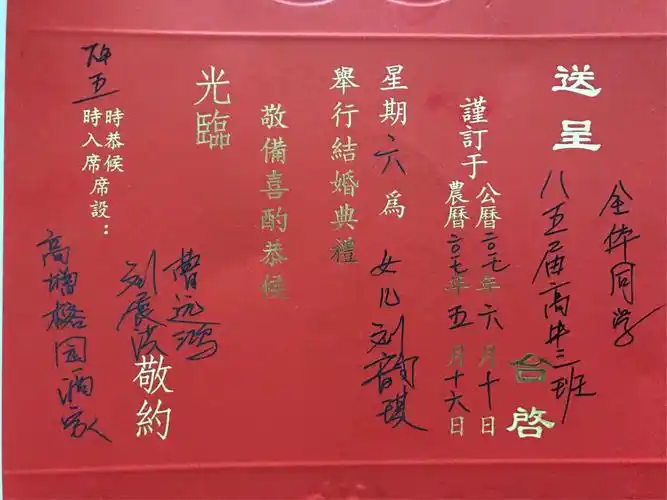 送呈
八五届高中三班
全体同学
台啓
謹訂于
公曆二〇一七年六月十日
農曆二〇一七年五月十六日
星期六為女儿刘韵琪
舉行結婚典禮
敬備喜酌恭候
光臨
曹远鸿
刘展波
敬約
時恭候
五時入席
席設：
高增榕园酒家